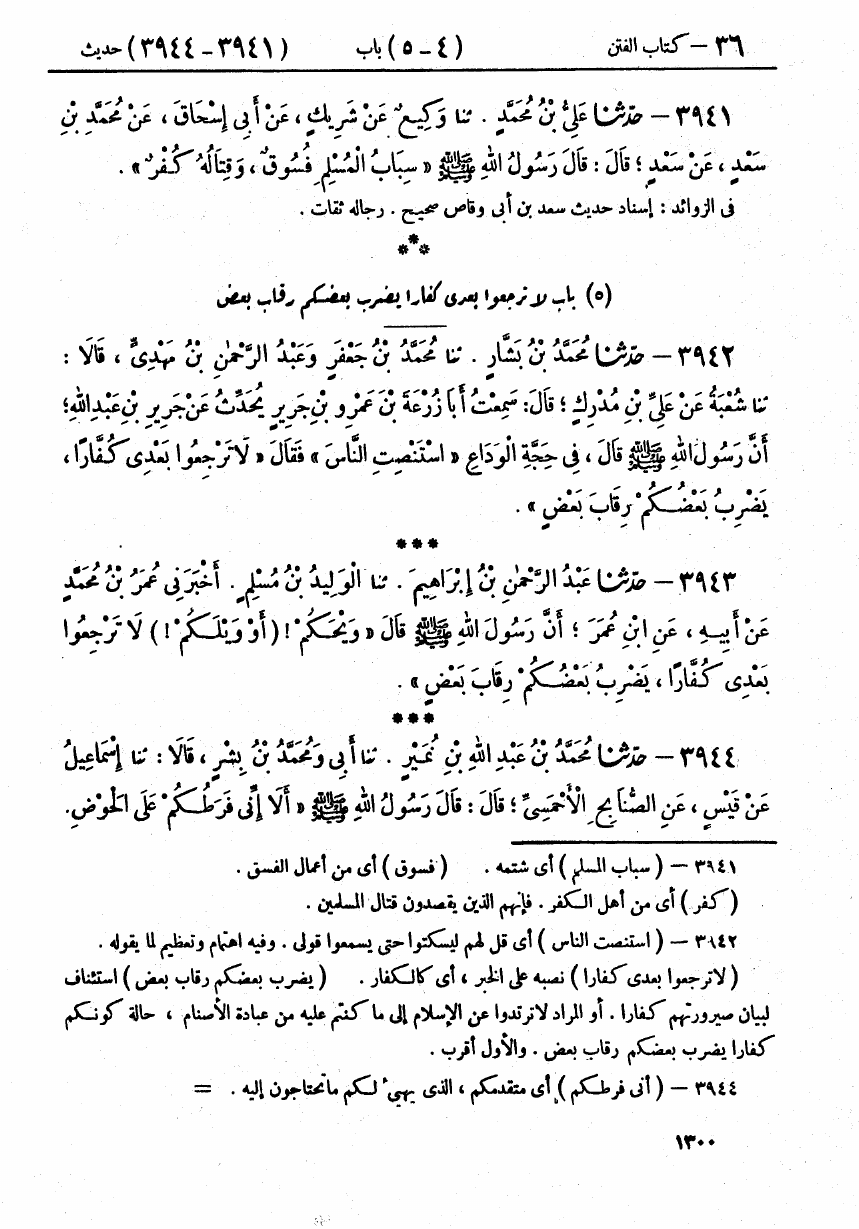 ٣٦ – كتاب الفتن (٤ – ٥) باب (٣٩٤١ – ٣٩٤٤) حديث
٣٩٤١ – حدّثنا عَلِيُّ بْنُ مُحَمَّدٍ . ثنا وَكِيعٌ عَنْ شَرِيكٍ، عَنْ أَبِى إِسْحَاقَ ، عَنْ مُحَمَّدِ بْنِ
سَعْدٍ ، عَنْ سَعْدٍ ؛ قَالَ : قَالَ رَسُولُ اللهِ ﷺ « سِبَابُ الْمُسْلِمِ فُسُوقٌ ، وَقِتَالُهُ كُفْرٌ » .
فى الزوائد : إسناد حديث سعد بن أبى وقاص صحيح . رجاله ثقات .
***
(٥) باب لا ترجعوا بعدى كفارا يضرب بعضكم رقاب بعض
٣٩٤٢ – حدّثنا مُحَمَّدُ بْنُ بَشَّارٍ . ثنا مُحَمَّدُ بْنُ جَعْفَرٍ وَعَبْدُ الرَّحْمٰنِ بْنُ مَهْدِىٍّ ، قَالَا :
ثنا شُعْبَةُ عَنْ عَلِىِّ بْنِ مُدْرِكٍ ؛ قَالَ: سَمِعْتُ أَبَا زُرْعَةَ بْنَ عَمْرِو بْنِ جَرِيرٍ يُحَدِّثُ عَنْ جَرِيرِ بْنِ عَبْدِ اللهِ؛
أَنَّ رَسُولَ اللهِ ﷺ قَالَ ، فِى حِجَّةِ الْوَدَاعِ « اسْتَنْصِتِ النَّاسَ » فَقَالَ « لَا تَرْجِعُوا بَعْدِى كُفَّارًا ،
يَضْرِبُ بَعْضُكُمْ رِقَابَ بَعْضٍ » .
***
٣٩٤٣ – حدّثنا عَبْدُ الرَّحْمٰنِ بْنُ إِبْرَاهِيمَ . ثنا الْوَلِيدُ بْنُ مُسْلِمٍ . أَخْبَرَنِى عُمَرُ بْنُ مُحَمَّدٍ
عَنْ أَبِيهِ ، عَنِ ابْنِ عُمَرَ ؛ أَنَّ رَسُولَ اللهِ ﷺ قَالَ « وَيْحَكُمْ ! ( أَوْ وَيْلَكُمْ ! ) لَا تَرْجِعُوا
بَعْدِى كُفَّارًا ، يَضْرِبُ بَعْضُكُمْ رِقَابَ بَعْضٍ » .
***
٣٩٤٤ – حدّثنا مُحَمَّدُ بْنُ عَبْدِ اللهِ بْنِ نُمَيْرٍ . ثنا أَبِى وَمُحَمَّدُ بْنُ بِشْرٍ ، قَالَا : ثنا إِسْمَاعِيلُ
عَنْ قَيْسٍ ، عَنِ الصُّنَابِحِ الْأَحْمَسِىِّ ؛ قَالَ : قَالَ رَسُولُ اللهِ ﷺ « أَلَا إِنِّى فَرَطُكُمْ عَلَى الْحَوْضِ.
٣٩٤١ – ( سباب المسلم ) أى شتمه . ( فسوق ) أى من أعمال الفسق .
( كفر ) أى من أهل الكفر . فإنهم الذين يقصدون قتال المسلمين .
٣٩٤٢ – ( استنصت الناس ) أى قل لهم ليسكتوا حتى يسمعوا قولى . وفيه اهتمام وتعظيم لما يقوله .
( لاترجعوا بعدى كفارا ) نصبه على الخبر ، أى كالكفار . ( يضرب بعضكم رقاب بعض ) استئناف
لبيان صيرورتهم كفارا . أو المراد لاترتدوا عن الإسلام إلى ما كنتم عليه من عبادة الأصنام ، حالة كونكم
كفارا يضرب بعضكم رقاب بعض . والأول أقرب .
٣٩٤٤ – ( أنى فرطكم ) أى متقدمكم ، الذى يهيء لكم ماتحتاجون إليه . =
١٣٠٠